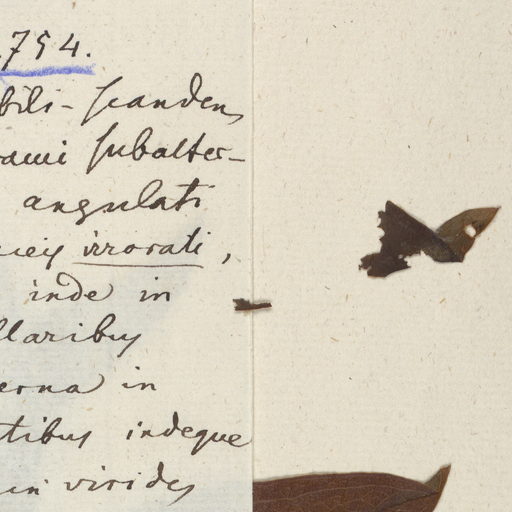 754.
bili- scandens
rami subalter-
angulati
irrorati,
inde in
llaribus
erna in
tibus indeque
in virides